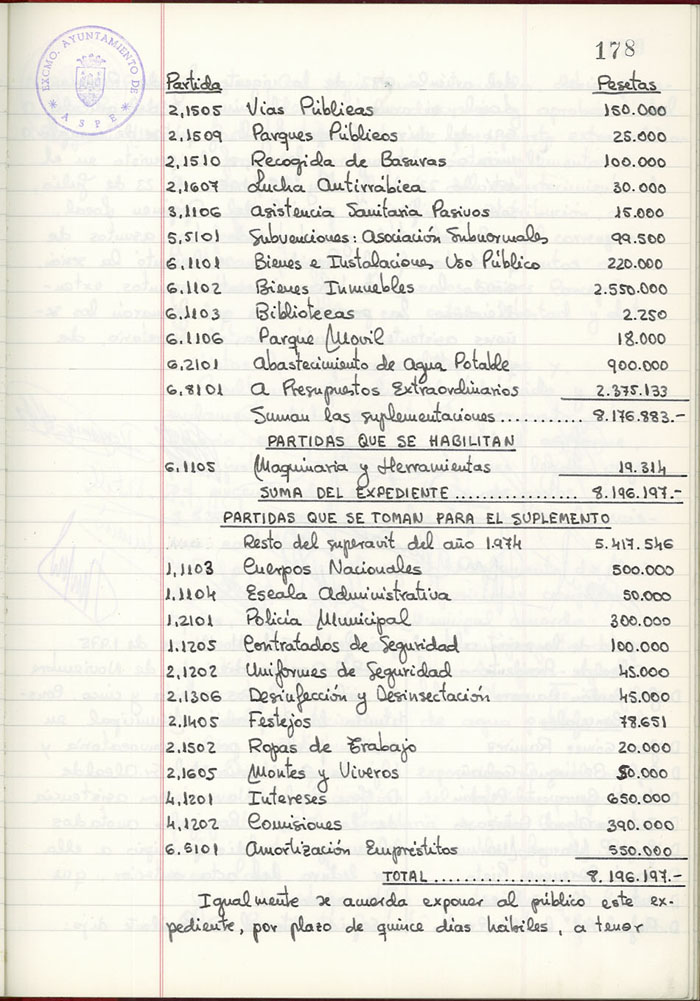 EXCMO. AYUNTAMIENTO DE
ASPE
178
Partida Pesetas
2,1505 Vias Públicas 150.000
2,1509 Parques Públicos 25.000
2,1510 Recogida de Basuras 100.000
2,1607 Lucha Antirrábica 30.000
3,1106 Asistencia Sanitaria Pasivos 15.000
5,5101 Subvenciones: Asociación Subnormales 99.500
6,1101 Bienes e Instalaciones Uso Público 220.000
6,1102 Bienes Inmuebles 2.550.000
6,1103 Bibliotecas 2.250
6,1106 Parque Movil 18.000
6,2101 Abastecimiento de Agua Potable 900.000
6,8101 A Presupuestos Extraordinarios 2.375.133
Suman las suplementaciones........... 8.176.883.-
PARTIDAS QUE SE HABILITAN
6,1105 Maquinaria y Herramientas 19.314
SUMA DEL EXPEDIENTE ............... 8.196.197.-
PARTIDAS QUE SE TOMAN PARA EL SUPLEMENTO
Resto del superavit del año 1.974 5.417.546
1,1103 Cuerpos Nacionales 500.000
1,1104 Escala Administrativa 50.000
1,2101 Policía Municipal 300.000
1.1205 Contratados de Seguridad 100.000
2,1202 Uniformes de Seguridad 45.000
2,1306 Desinfección y Desinsectación 45.000
2,1405 Festejos 78.651
2,1502 Ropas de Trabajo 20.000
2,1605 Montes y Viveros 50.000
4,1201 Intereses 650.000
4,1202 Comisiones 390.000
6.5101 Amortización Empréstitos 550.000
TOTAL .................. 8.196.197.-
Igualmente se acuerda exponer al público este ex-
pediente, por plazo de quince días hábiles, a tenor